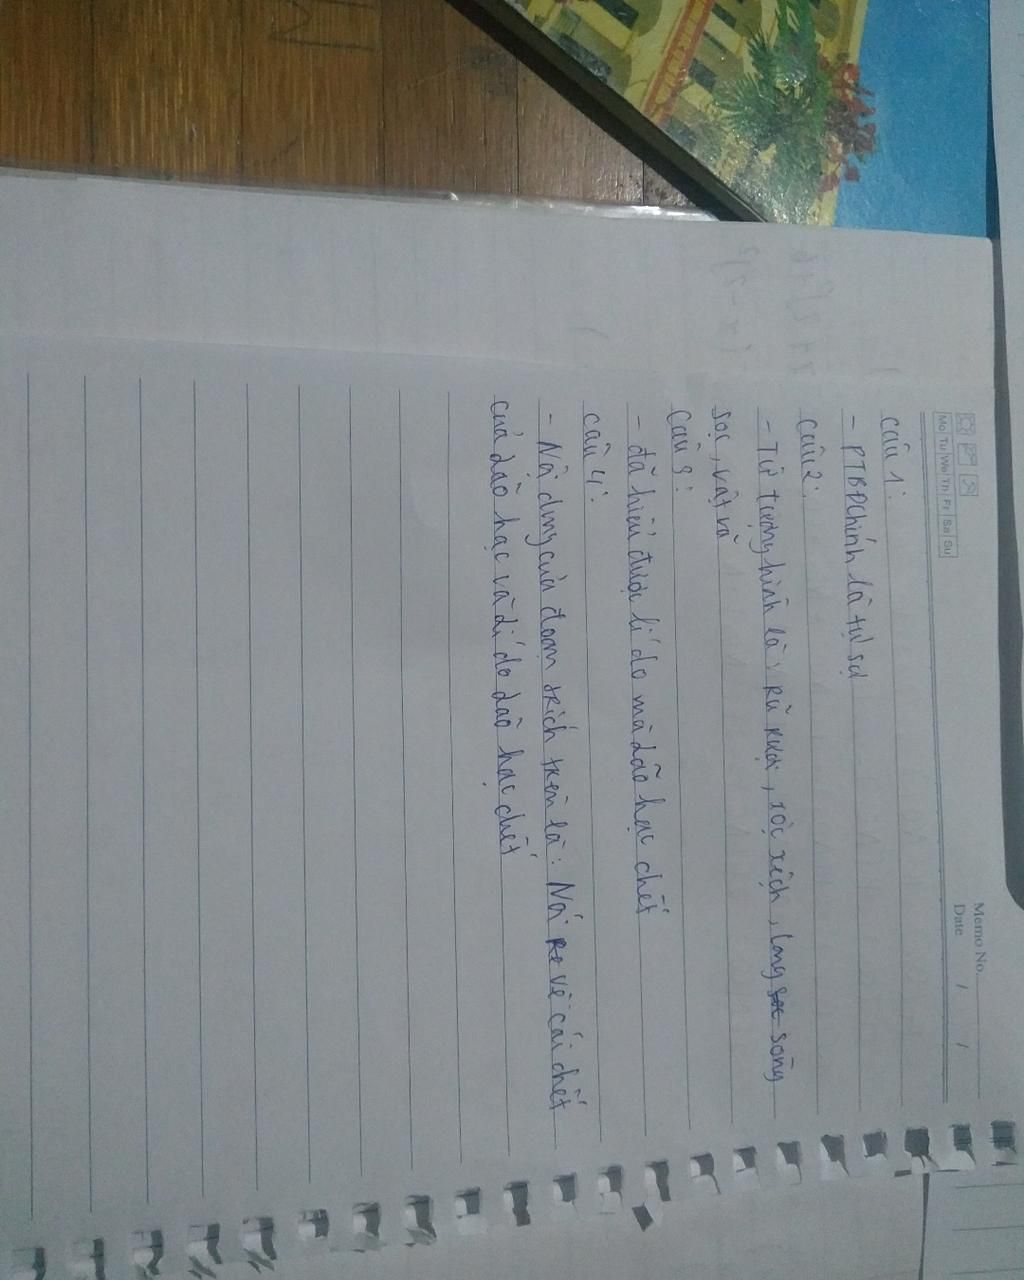 Memo No.
Date / /
Mo Tu We Th Fr Sa Su
câu 1:
- PTBĐ chính là tự sự
câu 2:
- Từ tượng hình là: rũ rượi, xộc xệch, long sòng
sọc, vật vã
câu 3:
- đã hiểu được lí do mà lão hạc chết
câu 4:
- Nội dung của đoạn trích trên là: Nói về cái chết
của lão hạc và lí do lão hạc chết